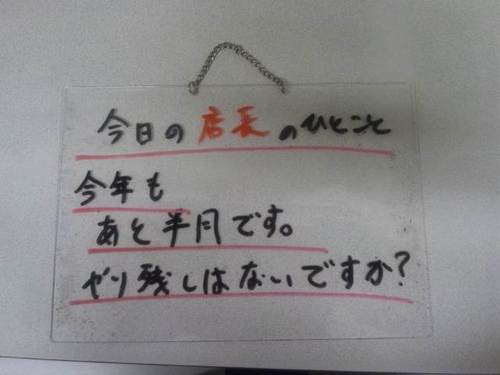 今日の店長のひとこと
今年も
あと半月です。
やり残しはないですか?